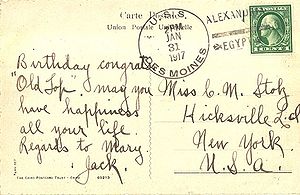 Carte Postale
Union Postale Universelle
U.S.S.
PM
JAN
31
1917
DES MOINES
ALEXAND
EGYPT
Birthday congrats
"Old Top". I may you
have happiness
all your life.
Regards to Mary.
Jack.
Miss C. M. Stolz
Hicksville L.d
New York.
U.S.A.
THE CAIRO POSTCARD TRUST - CAIRO